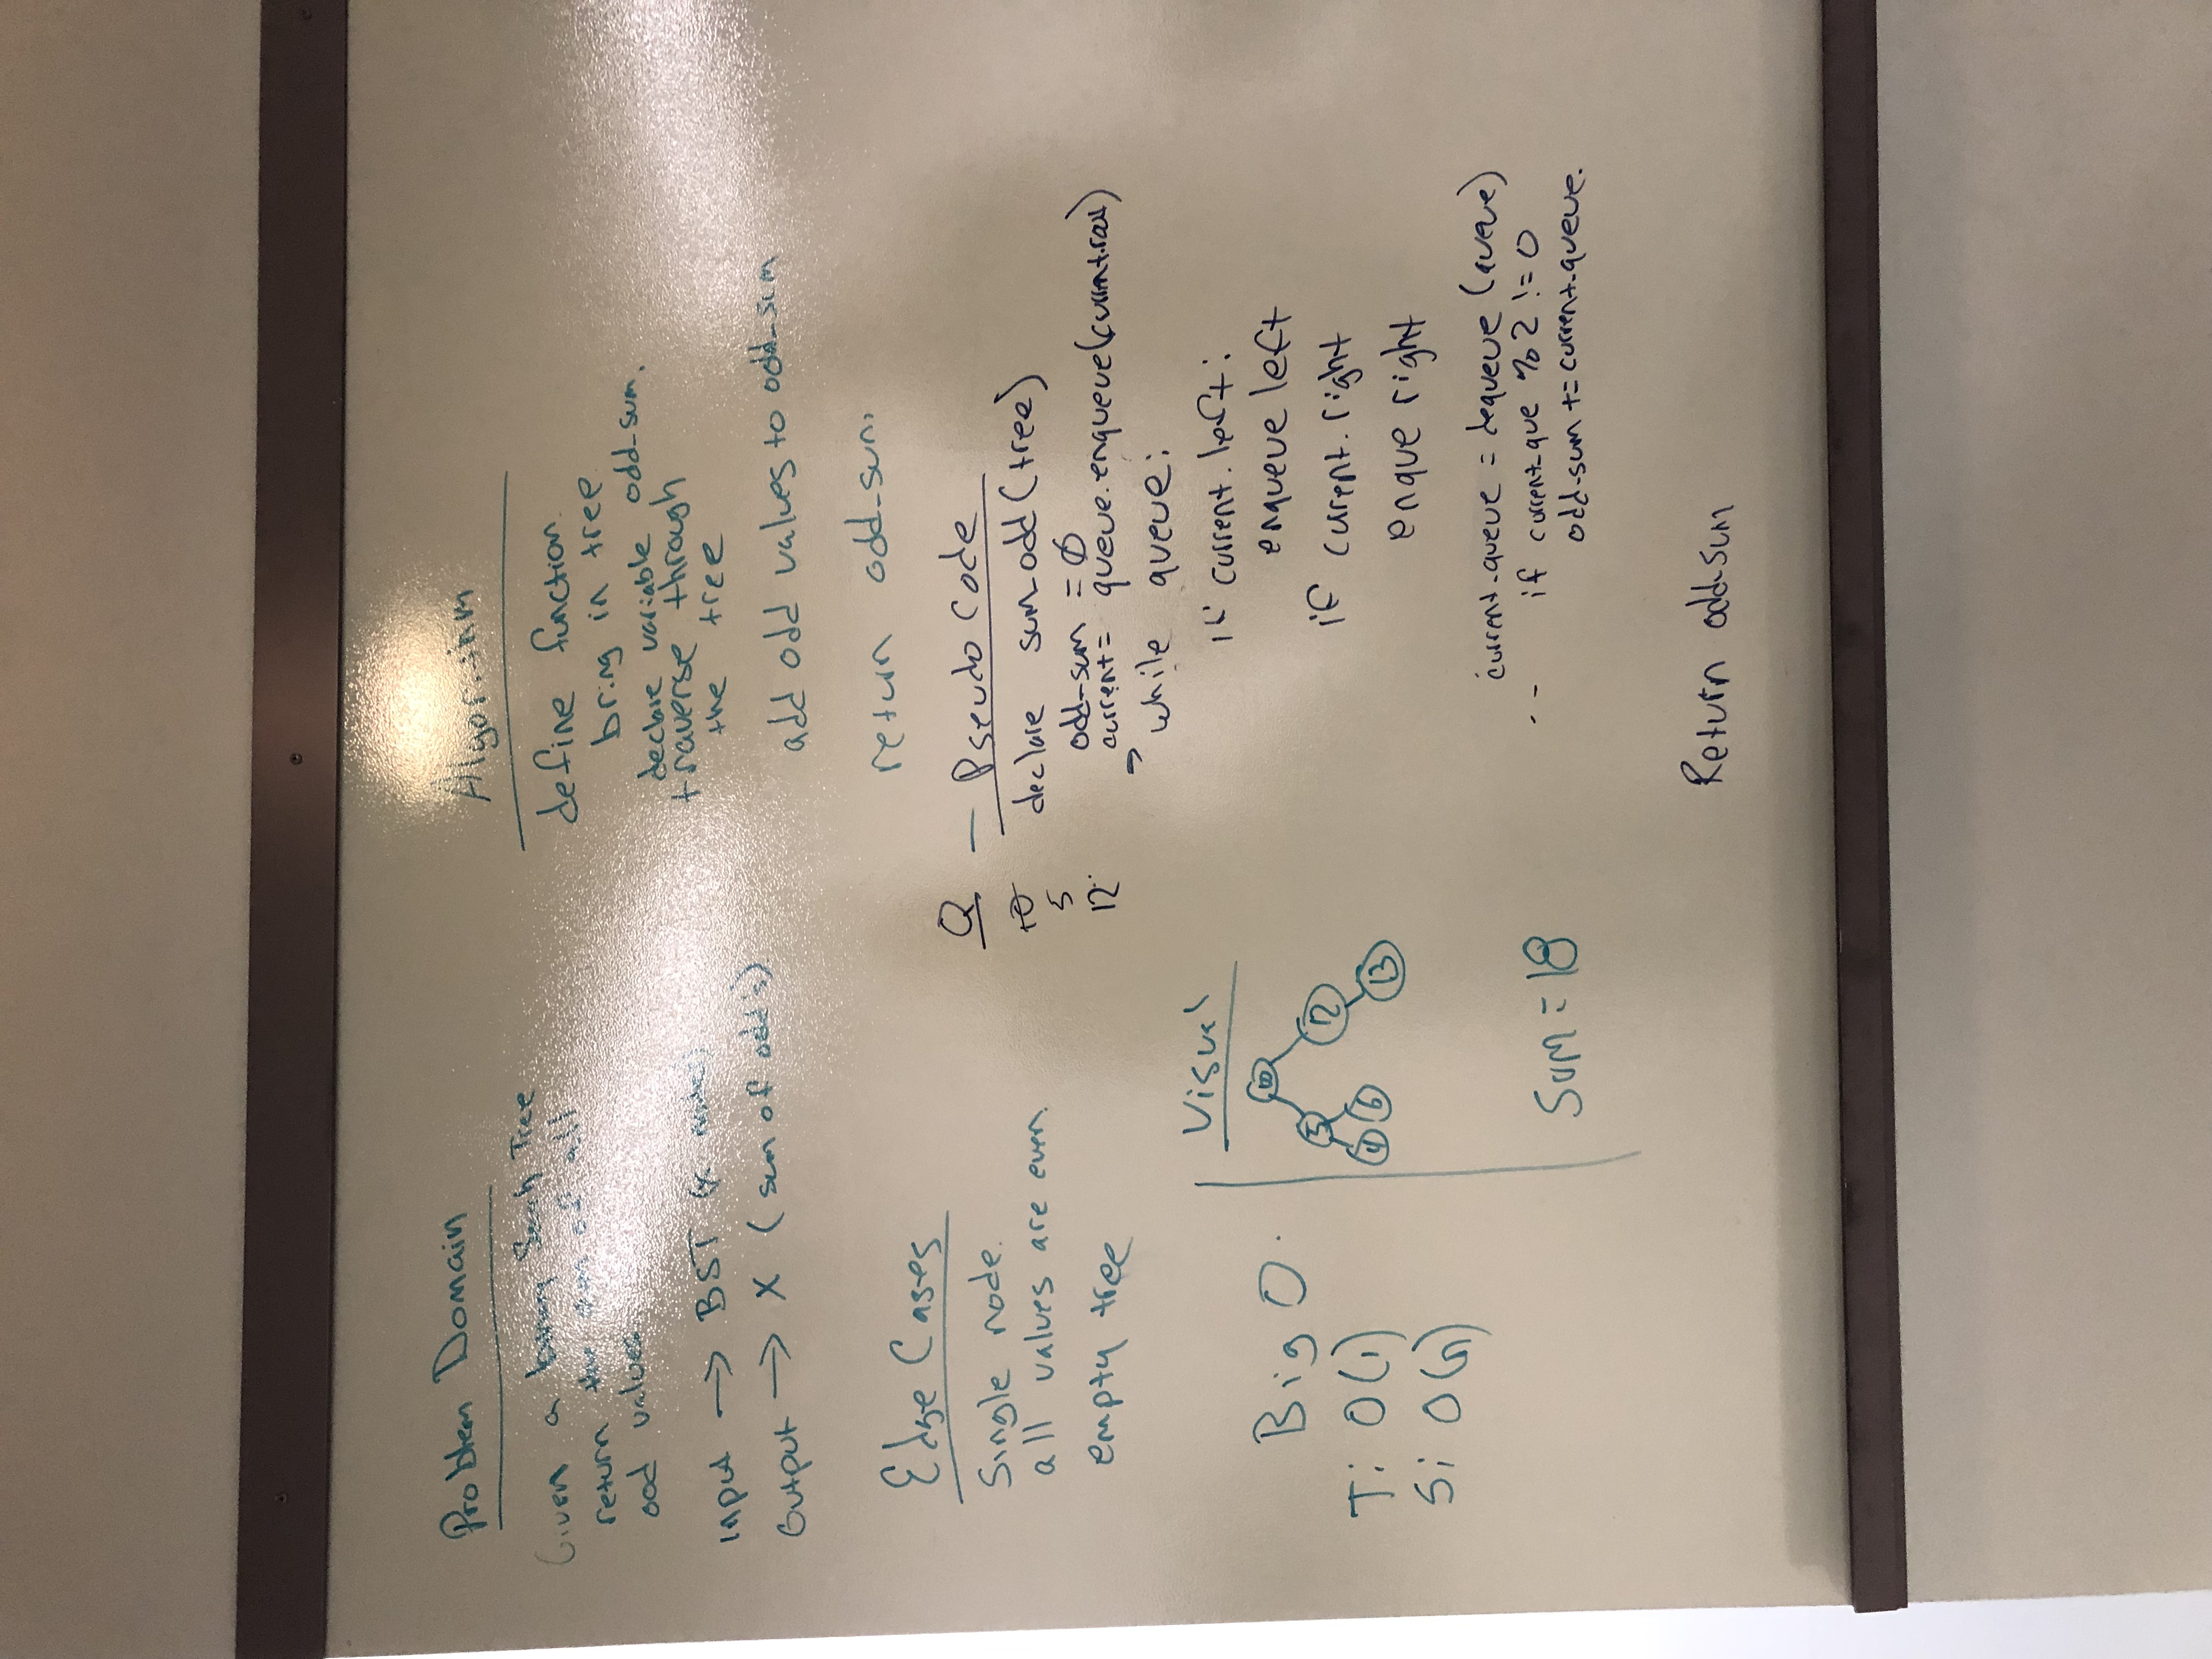 Problem Domain
Given a binary Seach Tree
return the sum of all
ood values
Input → BST
Output → X (sum of odd's)
Edge Cases
Single node.
all values are even.
empty tree
Big O
T: O(1)
S: O(n)
Visual
10
5 12
4 6 13
Sum = 18
Algorithm
define function
bring in tree
declare variable odd_sum.
traverse through
the tree
add odd values to odd_sum
return odd_sum.
Q
10
5
12
— Pseudo Code
declare sum_odd(tree)
odd-sum = 0
current = queue.enqueue(current.root)
while queue:
if current.left:
enqueue left
if current.right
enque right
current-queue = dequeue (queue)
-- if current-que %2 != 0
odd-sum += current-queue.
Return odd-sum